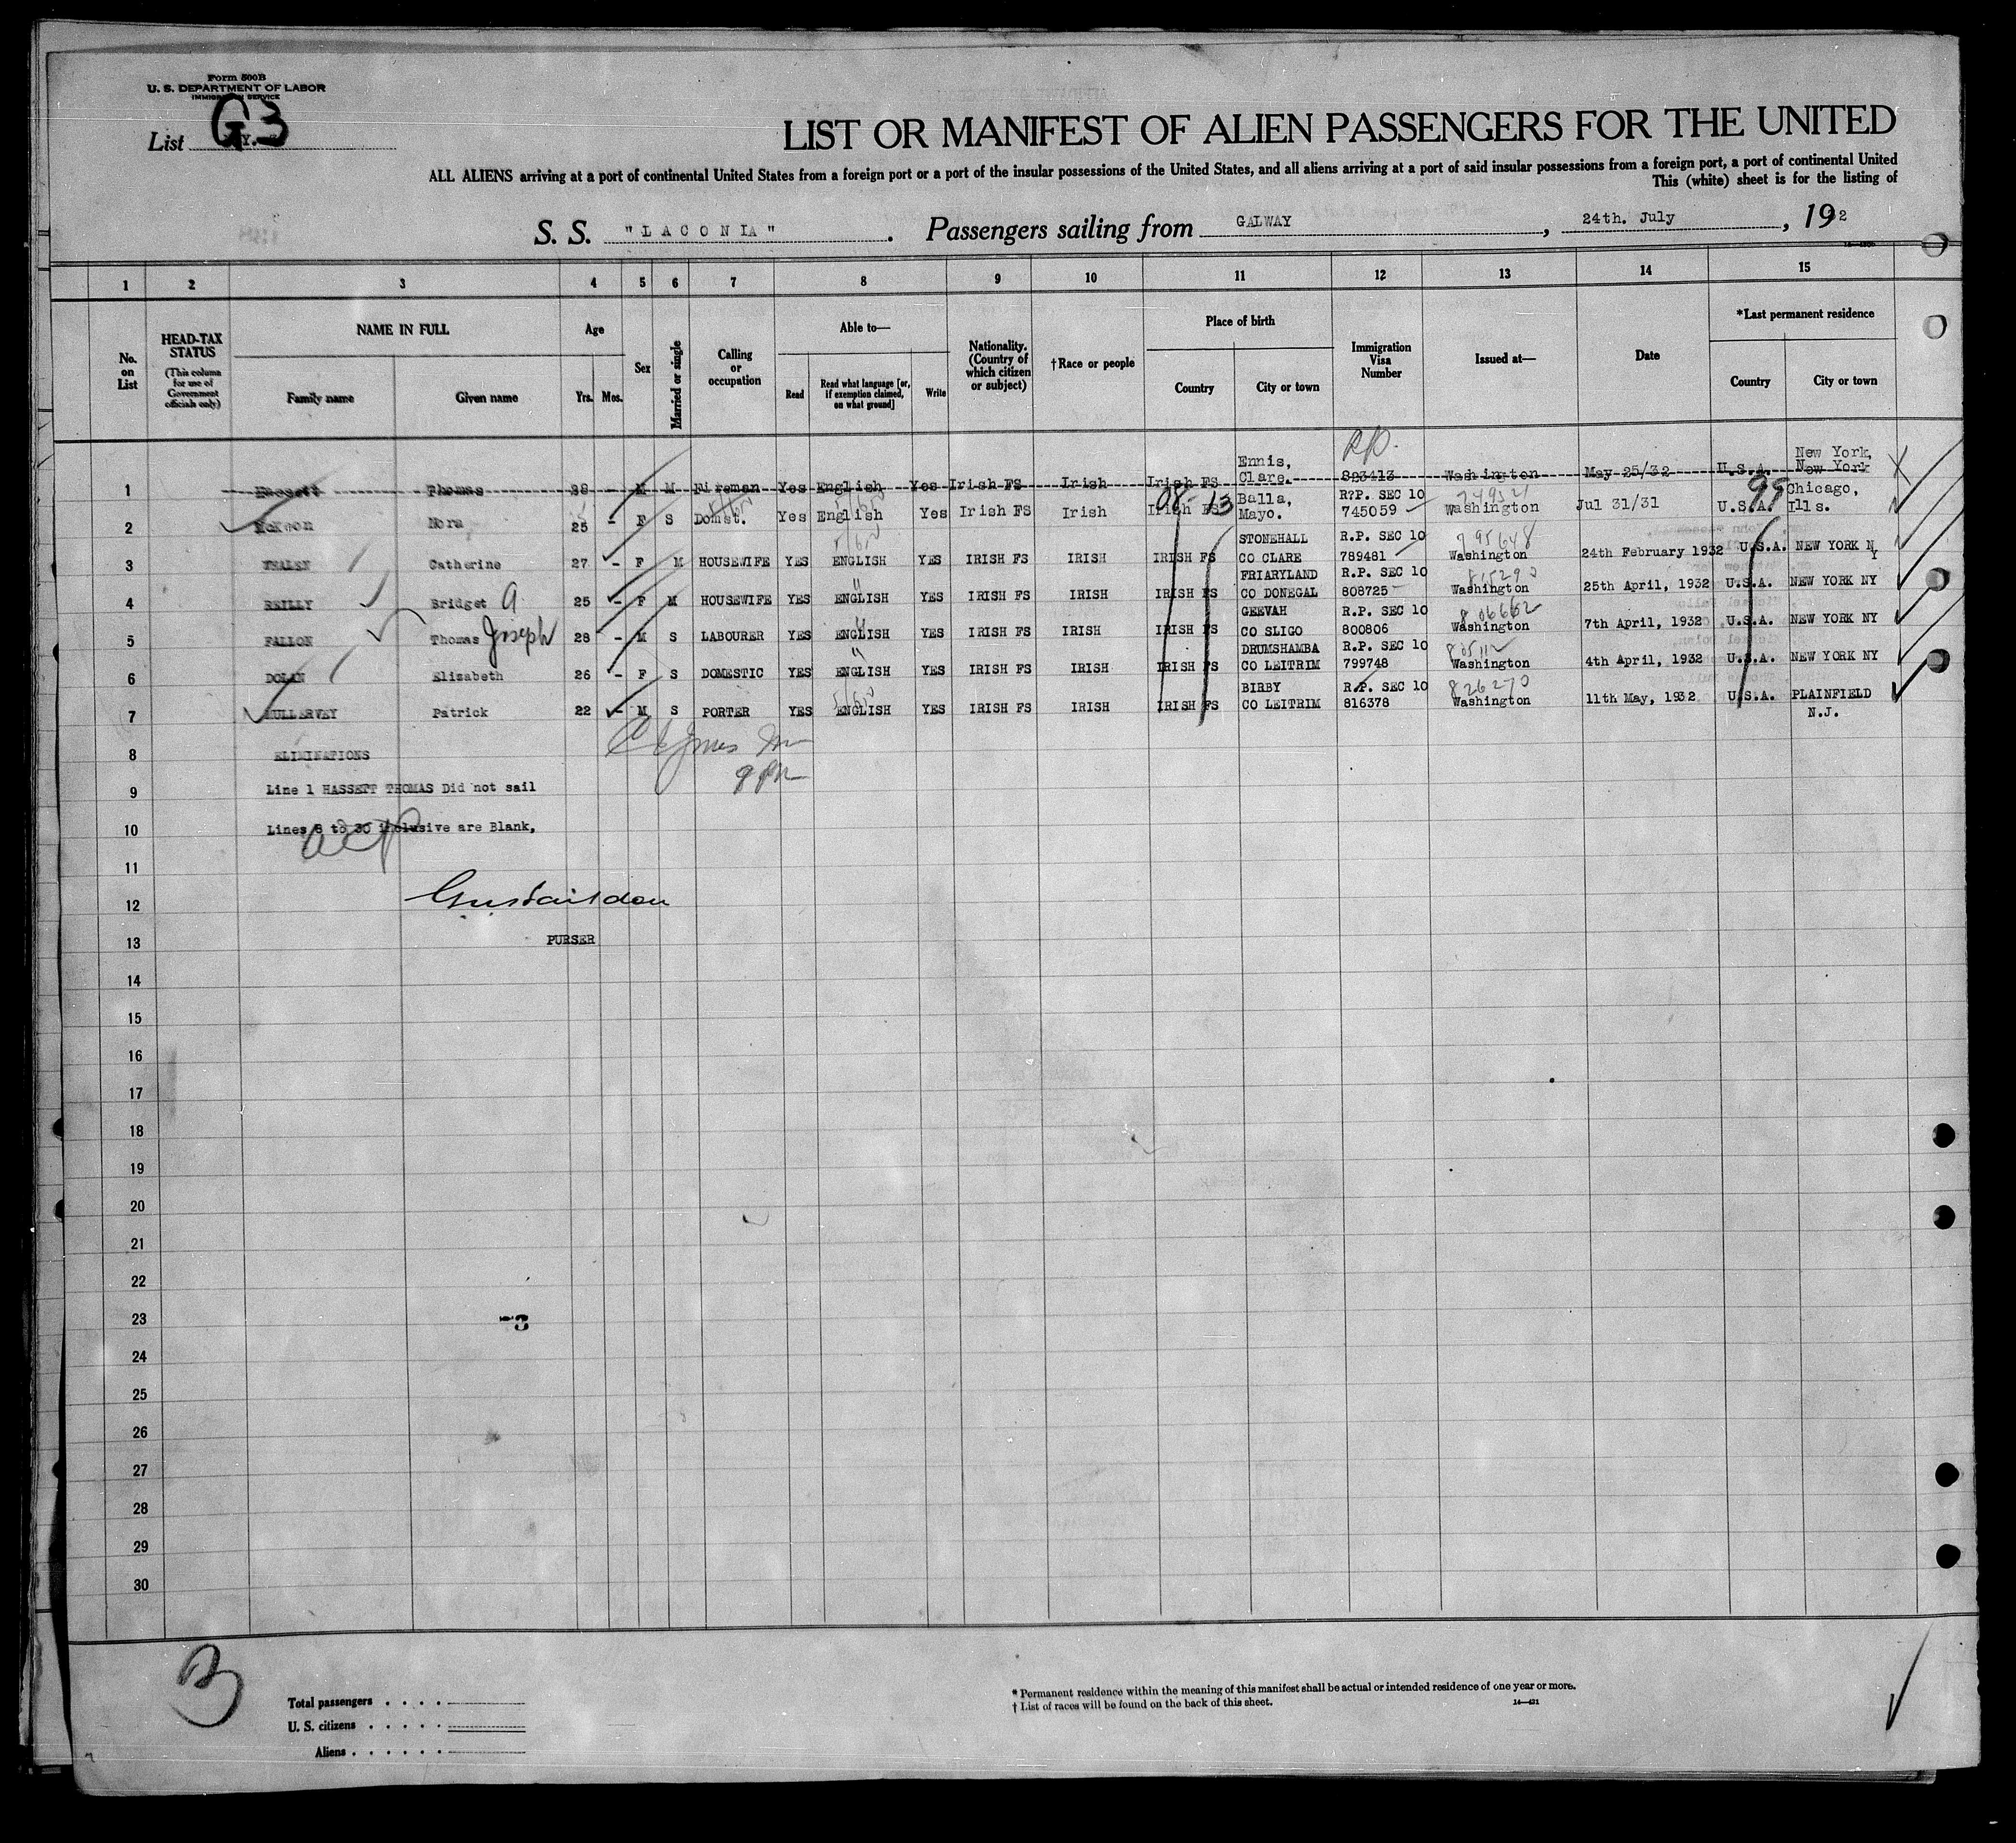 Form 500B
U. S. DEPARTMENT OF LABOR
IMMIGRATION SERVICE
List G3
LIST OR MANIFEST OF ALIEN PASSENGERS FOR THE UNITED
ALL ALIENS arriving at a port of continental United States from a foreign port or a port of the insular possessions of the United States, and all aliens arriving at a port of said insular possessions from a foreign port, a port of continental United
This (white) sheet is for the listing of
S. S. "LACONIA". Passengers sailing from GALWAY, 24th. July, 192
1 2 3 4 5 6 7 8 9 10 11 12 13 14 15
No. on List
HEAD-TAX STATUS
(This column for use of Government officials only)
NAME IN FULL
Family name Given name
Age
Yrs. Mos.
Sex
Married or single
Calling or occupation
Able to—
Read
Read what language [or, if exemption claimed, on what ground]
Write
Nationality. (Country of which citizen or subject)
†Race or people
Place of birth
Country City or town
Immigration Visa Number
Issued at—
Date
*Last permanent residence
Country City or town
R/P.
1 Hassett Thomas 38 - M M Fireman Yes English Yes Irish FS Irish Irish FS Ennis, Clare. 893413 Washington May 25/32 U.S.A. New York, New York
2 McKeon Nora 25 - F S Domst. Yes English Yes Irish FS Irish Irish FS Balla, Mayo. R?P. SEC 10 745059 Washington Jul 31/31 U.S.A. Chicago, Ills.
08-13 99
3 Catherine 27 - F M HOUSEWIFE YES ENGLISH YES IRISH FS IRISH IRISH FS STONEHALL CO CLARE R.P. SEC 10 789481 795648 Washington 24th February 1932 U.S.A. NEW YORK NY
4 REILLY Bridget A 25 - F M HOUSEWIFE YES ENGLISH YES IRISH FS IRISH IRISH FS FRIARYLAND CO DONEGAL R.P. SEC 10 808725 815290 Washington 25th April, 1932 U.S.A. NEW YORK NY
5 FALLON Thomas Joseph 28 - M S LABOURER YES ENGLISH YES IRISH FS IRISH IRISH FS GEEVAH CO SLIGO R.P. SEC 10 800806 806662 Washington 7th April, 1932 U.S.A. NEW YORK NY
6 DOLAN Elizabeth 26 - F S DOMESTIC YES ENGLISH YES IRISH FS IRISH IRISH FS DRUMSHAMBA CO LEITRIM R.P. SEC 10 799748 805112 Washington 4th April, 1932 U.S.A. NEW YORK NY
7 MULLERVEY Patrick 22 - M S PORTER YES ENGLISH YES IRISH FS IRISH IRISH FS BIRBY CO LEITRIM R.P. SEC 10 816378 826270 Washington 11th May, 1932 U.S.A. PLAINFIELD N.J.
8 ELIMINATIONS
9 Line 1 HASSETT THOMAS Did not sail
10 Lines 8 to 30 inclusive are Blank,
11
12
13 PURSER
14
15
16
17
18
19
20
21
22
23
24
25
26
27
28
29
30
Total passengers . . . .
U. S. citizens . . . . .
Aliens . . . . . .
* Permanent residence within the meaning of this manifest shall be actual or intended residence of one year or more.
† List of races will be found on the back of this sheet.
14—421